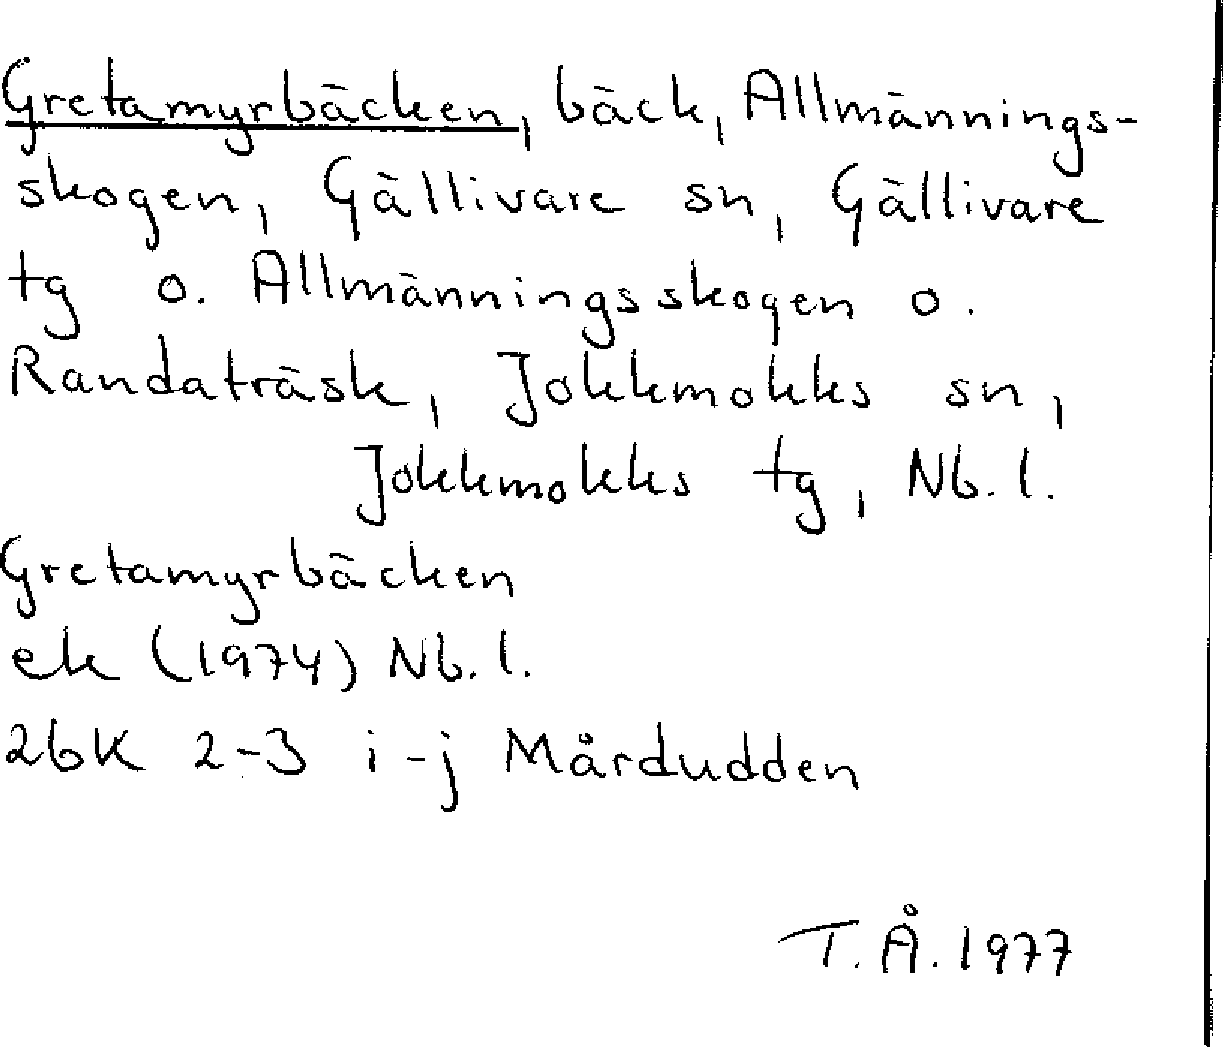 Gretamyrbäcken, bäck, Allmännings-
skogen, Gällivare sn, Gällivare
tg o. Allmänningsskogen o.
Randaträsk, Jokkmokks sn,
Jokkmokks tg, Nb. l.
Gretamyrbäcken
ek (1974) Nb. l.
26K 2-3 i-j Mårdudden
T. Å. 1977